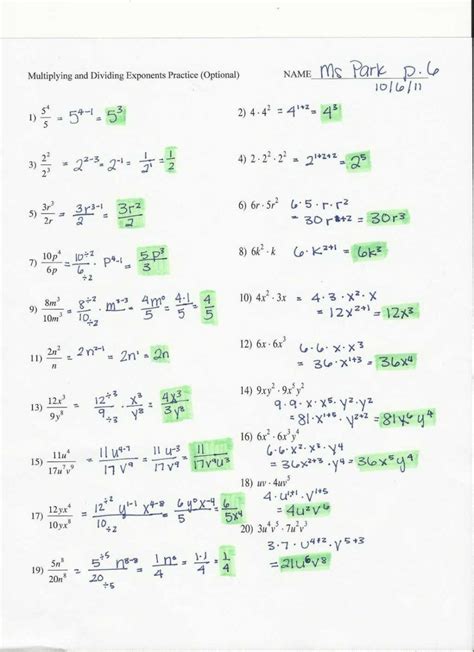 Multiplying and Dividing Exponents Practice (Optional) NAME Ms Park p. 6
10/6/11
1) 5⁴/5 = 5⁴⁻¹ = 5³
2) 4 · 4² = 4¹⁺² = 4³
3) 2²/2³ = 2²⁻³ = 2⁻¹ = 1/2¹ = 1/2
4) 2 · 2² · 2² = 2¹⁺²⁺² = 2⁵
5) 3r³/2r = 3r³⁻¹/2 = 3r²/2
6) 6r · 5r² 6 · 5 · r · r²
= 30r¹⁺² = 30r³
7) 10p⁴/6p = 10÷2/6÷2 · p⁴⁻¹ = 5p³/3
8) 6k² · k 6 · k²⁺¹ = 6k³
9) 8m³/10m³ = 8÷2/10÷2 · m³⁻³ = 4m⁰/5 = 4·1/5 = 4/5
10) 4x² · 3x = 4 · 3 · x² · x
= 12x²⁺¹ = 12x³
11) 2n²/n = 2n²⁻¹ = 2n¹ = 2n
12) 6x · 6x³ 6 · 6 · x · x³
= 36x¹⁺³ = 36x⁴
13) 12x³/9y⁸ = 12÷3/9÷3 · x³/y⁸ = 4x³/3y⁸
14) 9xy² · 9x⁵y²
9 · 9 · x · x⁵ · y² · y²
= 81x¹⁺⁵ · y²⁺² = 81x⁶y⁴
15) 11u⁴/17u⁷v⁹ = 11u⁴⁻⁷/17v⁹ = 11u⁻³/17v⁹ = 11/17v⁹u³
16) 6x² · 6x³y⁴
6 · 6 · x² · x³ · y⁴
= 36x²⁺³ · y⁴ = 36x⁵y⁴
17) 12yx⁴/10yx⁸ = 12÷2/10÷2 y¹⁻¹x⁴⁻⁸ = 6y⁰x⁻⁴/5 = 6/5x⁴
18) uv · 4uv⁵
4 · u¹⁺¹ · v¹⁺⁵
= 4u²v⁶
19) 5n⁸/20n⁸ = 5÷5 n⁸⁻⁸/20÷5 = 1n⁰/4 = 1·1/4 = 1/4
20) 3u⁴v⁵ · 7u²v³
3 · 7 · u⁴⁺² · v⁵⁺³
= 21u⁶v⁸